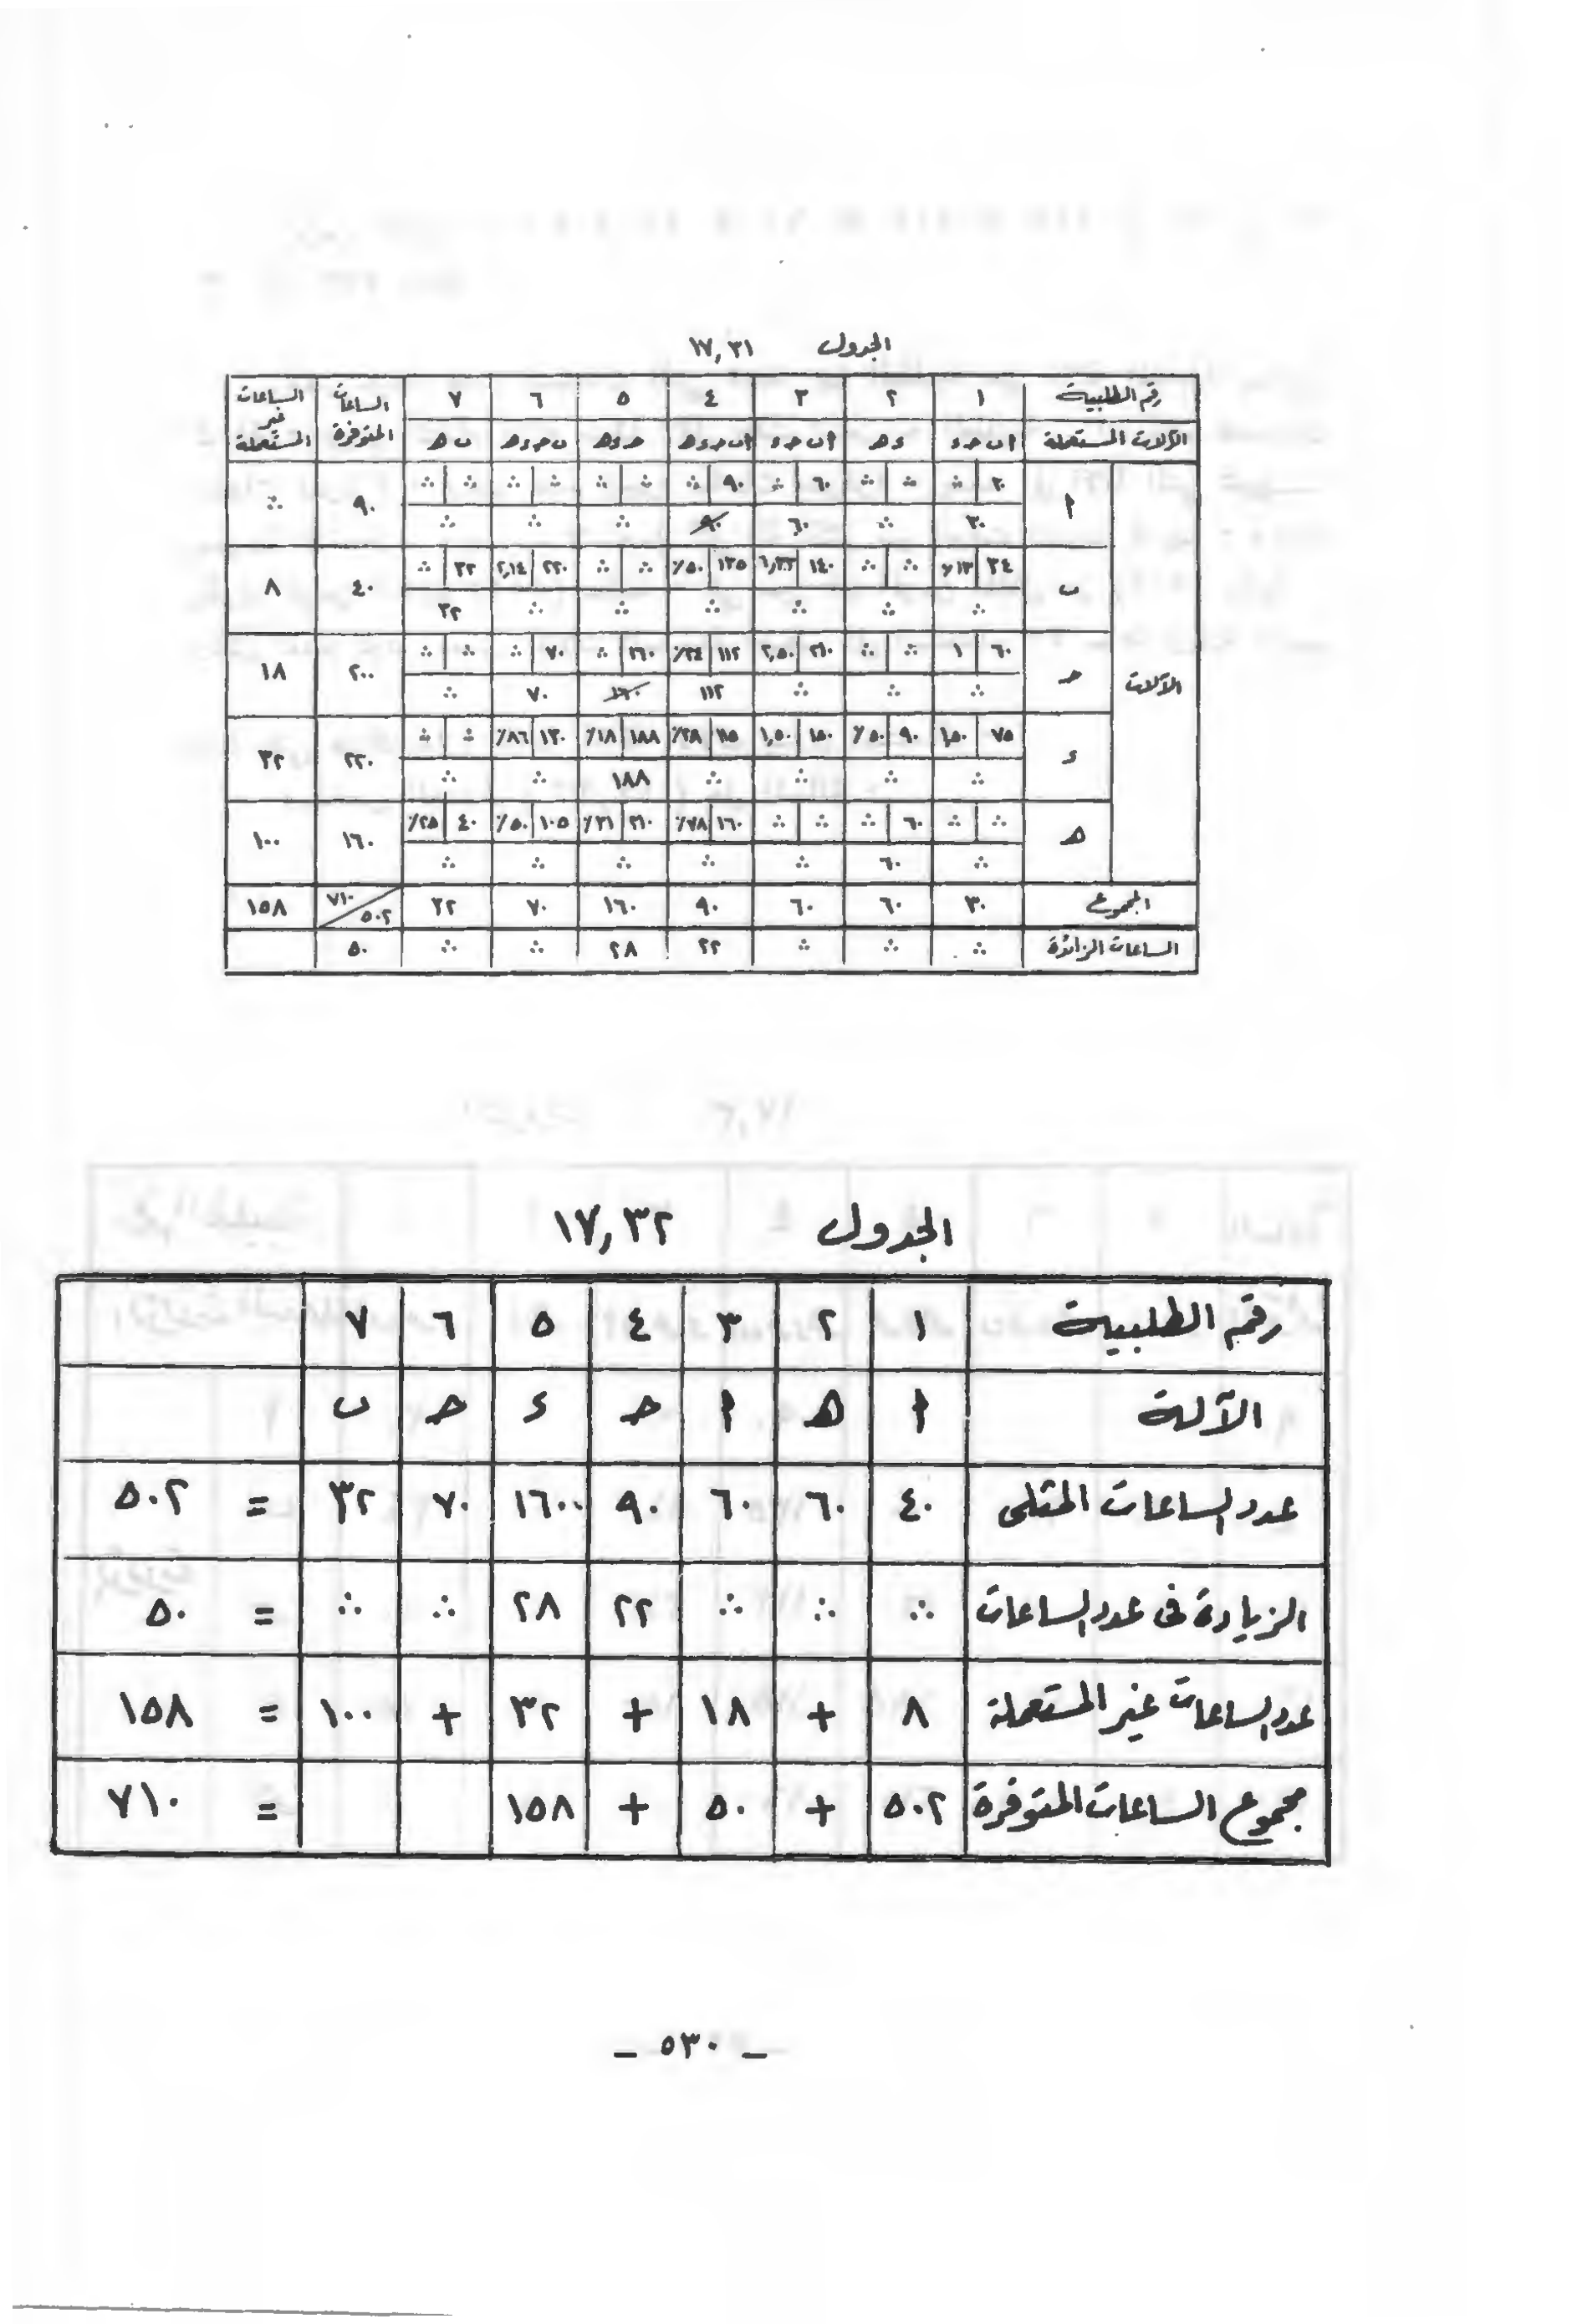 الجدول ١٧,٣١
رقم الطلبية ١ ٢ ٣ ٤ ٥ ٦ ٧ الساعات المتوفرة الساعات غير المستعملة
الآلات المستعملة ا ب حـ ء ء هـ ا ب حـ ء ا ب حـ ء هـ حـ ء هـ ب حـ ء هـ ب هـ
الآلات
ا ٣٠ ∴ ∴ ∴ ٦٠ ∴ ٩٠ ∴ ∴ ∴ ∴ ∴ ∴ ∴ ٩٠ ∴
٣٠ ∴ ٦٠ ٩٠ ∴ ∴ ∴
ب ٣٤ ١٣٪ ∴ ∴ ١٤٠ ١,٣٣ ١٣٥ ٥٠٪ ∴ ∴ ٢٢٠ ٢,١٤ ٣٢ ∴ ٤٠ ٨
∴ ∴ ∴ ∴ ∴ ∴ ٣٢
حـ ٦٠ ١ ∴ ∴ ٢١٠ ٢,٥٠ ١١٢ ٢٤٪ ١٦٠ ∴ ٧٠ ∴ ∴ ∴ ٢٠٠ ١٨
∴ ∴ ∴ ١١٢ ١٦٠ ٧٠ ∴
ء ٧٥ ١,٥٠ ٩٠ ٥٠٪ ١٥٠ ١,٥٠ ١١٥ ٢٨٪ ١٨٨ ١٨٪ ١٣٠ ٨٦٪ ∴ ∴ ٢٢٠ ٣٢
∴ ∴ ∴ ∴ ١٨٨ ∴ ∴
هـ ∴ ∴ ٦٠ ∴ ∴ ∴ ١٦٠ ٧٨٪ ٢١٠ ٣١٪ ١٠٥ ٥٠٪ ٤٠ ٢٥٪ ١٦٠ ١٠٠
∴ ٦٠ ∴ ∴ ∴ ∴ ∴
المجموع ٣٠ ٦٠ ٦٠ ٩٠ ١٦٠ ٧٠ ٣٢ ٧١٠ / ٥٠٢ ١٥٨
الساعات الزائدة ∴ ∴ ∴ ٢٢ ٢٨ ∴ ∴ ٥٠
الجدول ١٧,٣٢
رقم الطلبية ١ ٢ ٣ ٤ ٥ ٦ ٧
الآلة ا هـ ا حـ ء حـ ب
عدد الساعات المثلى ٤٠ ٦٠ ٦٠ ٩٠ ١٦٠٠ ٧٠ ٣٢ = ٥٠٢
الزيادة فى عدد الساعات ∴ ∴ ∴ ٢٢ ٢٨ ∴ ∴ = ٥٠
عدد الساعات غير المستعملة ٨ + ١٨ + ٣٢ + ١٠٠ = ١٥٨
مجموع الساعات المتوفرة ٥٠٢ + ٥٠ + ١٥٨ = ٧١٠
ـ ٥٣٠ ـ